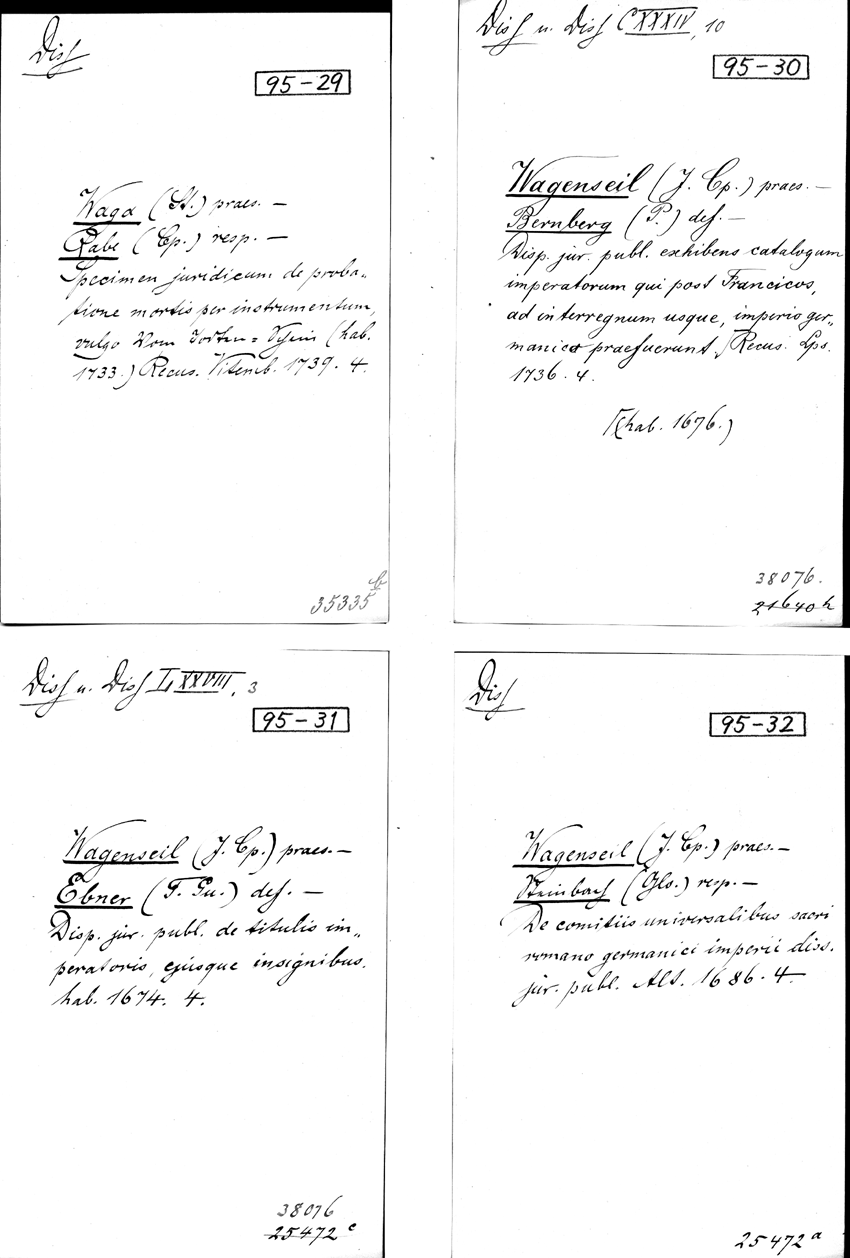 Diss
95-29
Waga (St.) praes. —
Rabe (Cp.) resp. —
Specimen juridicum de proba„
tione mortis per instrumentum,
vulgo Vom Todten= Schein (hab.
1733.) Recus. Vitemb. 1739. 4.
35335 b
Diss u. Diss CXXXIV, 10
95-30
Wagenseil (J. Cp.) praes. —
Bernberg (P.) def. —
Disp. jur. publ. exhibens catalogum
imperatorum qui post Francicos,
ad interregnum usque, imperio ger„
manico praefuerunt. Recus. Lps.
1736. 4.
(hab. 1676.)
38076.
21640 h
Diss u. Diss LXXVIII, 3
95-31
Wagenseil (J. Cp.) praes. —
Ebner (T. Gu.) def. —
Disp. jur. publ. de titulis im„
peratoris, ejusque insignibus.
hab. 1674. 4.
38076
25472 c
Diss
95-32
Wagenseil (J. Cp.) praes. —
Steinbach (Glo.) resp. —
De comitiis universalibus sacri
romano germanici imperii diss.
jur. publ. Alt. 1686. 4.
25472 a